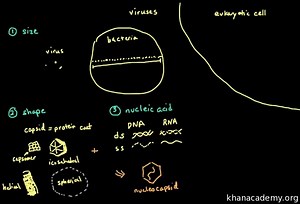 viruses
eukaryotic cell
① size
bacteria
virus
② shape
③ nucleic acid
capsid = protein coat
DNA RNA
ds
ss
capsomer
icosahedral
+
helical
spherical
nucleocapsid
khanacademy.org